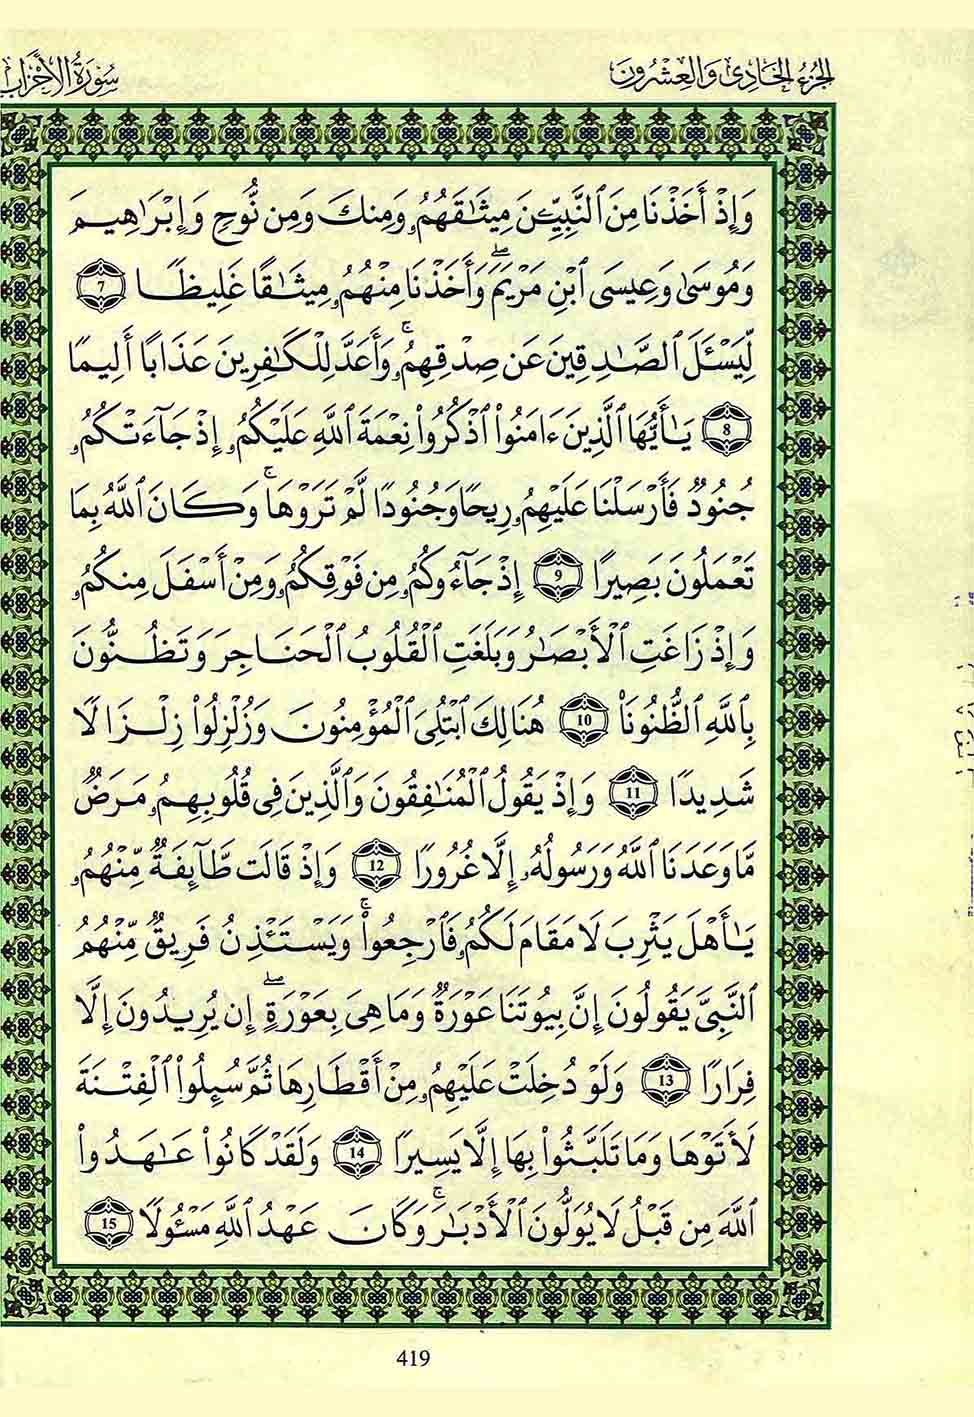 الجزء الحادي والعشرون
سورة الأحزاب
وَإِذْ أَخَذْنَا مِنَ ٱلنَّبِيِّـۧنَ مِيثَٰقَهُمُۥ وَمِنكَ وَمِن نُّوحٍ وَإِبْرَٰهِيمَ
وَمُوسَىٰ وَعِيسَى ٱبْنِ مَرْيَمَ ۖ وَأَخَذْنَا مِنْهُمُۥ مِيثَٰقًا غَلِيظًا 7
لِّيَسْـَٔلَ ٱلصَّٰدِقِينَ عَن صِدْقِهِمُۥ ۚ وَأَعَدَّ لِلْكَٰفِرِينَ عَذَابًا أَلِيمًا
8 يَٰٓأَيُّهَا ٱلَّذِينَ ءَامَنُوا۟ ٱذْكُرُوا۟ نِعْمَةَ ٱللَّهِ عَلَيْكُمُۥ إِذْ جَآءَتْكُمُۥ
جُنُودٌ فَأَرْسَلْنَا عَلَيْهِمُۥ رِيحًا وَجُنُودًا لَّمْ تَرَوْهَا ۚ وَكَانَ ٱللَّهُ بِمَا
تَعْمَلُونَ بَصِيرًا 9 إِذْ جَآءُوكُمُۥ مِن فَوْقِكُمُۥ وَمِنْ أَسْفَلَ مِنكُمُۥ
وَإِذْ زَاغَتِ ٱلْأَبْصَٰرُ وَبَلَغَتِ ٱلْقُلُوبُ ٱلْحَنَاجِرَ وَتَظُنُّونَ
بِٱللَّهِ ٱلظُّنُونَا۠ 10 هُنَالِكَ ٱبْتُلِىَ ٱلْمُؤْمِنُونَ وَزُلْزِلُوا۟ زِلْزَالًا
شَدِيدًا 11 وَإِذْ يَقُولُ ٱلْمُنَٰفِقُونَ وَٱلَّذِينَ فِى قُلُوبِهِمُۥ مَرَضٌ
مَّا وَعَدَنَا ٱللَّهُ وَرَسُولُهُۥ إِلَّا غُرُورًا 12 وَإِذْ قَالَت طَّآئِفَةٌ مِّنْهُمُۥ
يَٰٓأَهْلَ يَثْرِبَ لَا مَقَامَ لَكُمُۥ فَٱرْجِعُوا۟ ۚ وَيَسْتَـْٔذِنُ فَرِيقٌ مِّنْهُمُ
ٱلنَّبِىَّ يَقُولُونَ إِنَّ بِيُوتَنَا عَوْرَةٌ وَمَا هِىَ بِعَوْرَةٍ ۖ إِن يُرِيدُونَ إِلَّا
فِرَارًا 13 وَلَوْ دُخِلَتْ عَلَيْهِمُۥ مِنْ أَقْطَارِهَا ثُمَّ سُئِلُوا۟ ٱلْفِتْنَةَ
لَأَتَوْهَا وَمَا تَلَبَّثُوا۟ بِهَا إِلَّا يَسِيرًا 14 وَلَقَدْ كَانُوا۟ عَٰهَدُوا۟
ٱللَّهَ مِن قَبْلُ لَا يُوَلُّونَ ٱلْأَدْبَٰرَ ۚ وَكَانَ عَهْدُ ٱللَّهِ مَسْـُٔولًا 15
419